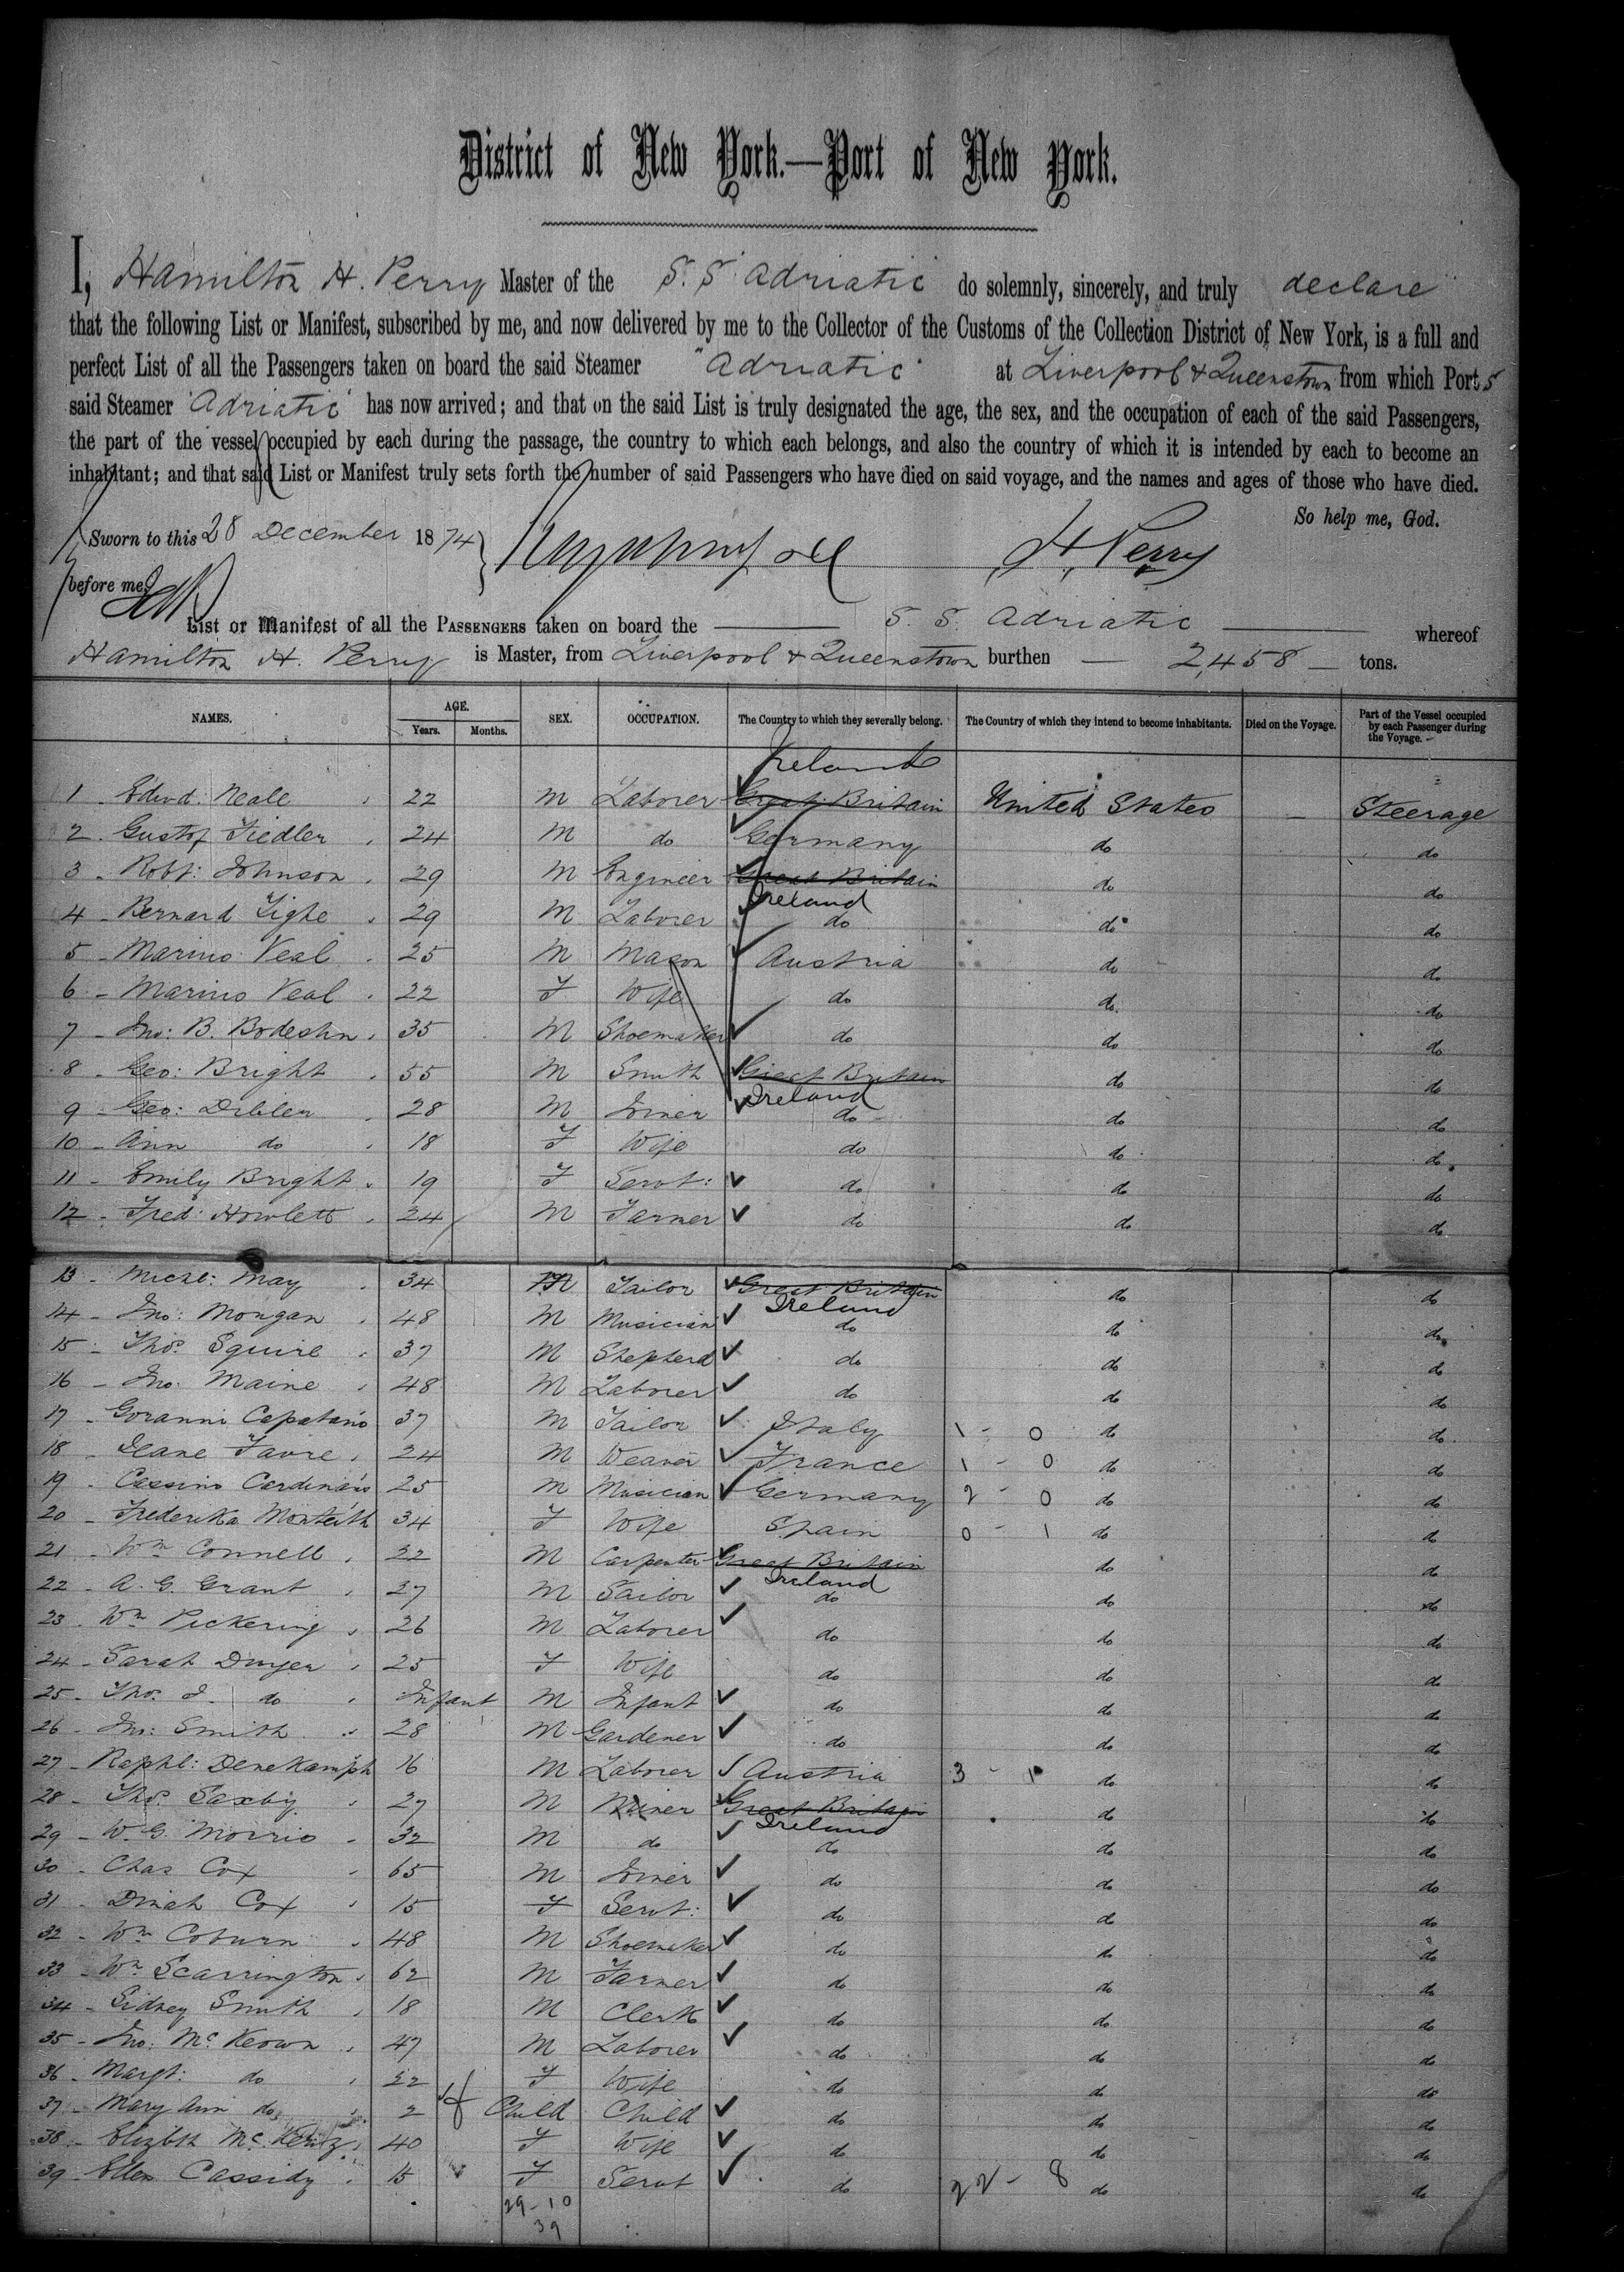 District of New York.—Port of New York.
I, Hamilton H. Perry Master of the S. S. Adriatic do solemnly, sincerely, and truly declare
that the following List or Manifest, subscribed by me, and now delivered by me to the Collector of the Customs of the Collection District of New York, is a full and
perfect List of all the Passengers taken on board the said Steamer "Adriatic" at Liverpool & Queenstown from which Ports
said Steamer "Adriatic" has now arrived; and that on the said List is truly designated the age, the sex, and the occupation of each of the said Passengers,
the part of the vessel occupied by each during the passage, the country to which each belongs, and also the country of which it is intended by each to become an
inhabitant; and that said List or Manifest truly sets forth the number of said Passengers who have died on said voyage, and the names and ages of those who have died.
So help me, God.
Sworn to this 28 December 1874
H. Perry
before me
List or Manifest of all the PASSENGERS taken on board the S. S. Adriatic whereof
Hamilton H. Perry is Master, from Liverpool & Queenstown burthen — 2,458 — tons.
NAMES. AGE. Years. Months. SEX. OCCUPATION. The Country to which they severally belong. The Country of which they intend to become inhabitants. Died on the Voyage. Part of the Vessel occupied by each Passenger during the Voyage.
Ireland
1 - Edwd: Neale 22 M Laborer Great Britain United States — Steerage
2 - Gustof Fiedler 24 M do Germany do do
3 - Robt: Johnson 29 M Engineer Great Britain do do
Ireland
4 - Bernard Tighe 29 M Laborer do do do
5 - Marino Veal 25 M Mason Austria do do
6 - Marino Veal 22 F Wife do do do
7 - Jno: B. Bodeshn 35 M Shoemaker do do do
8 - Geo: Bright 55 M Smith Great Britain do do
Ireland
9 - Geo: 28 M Joiner do do do
10 - Ann do 18 F Wife do do do
11 - Emily Bright 19 F Servt: do do do
12 - Fred: Howlett 24 M Farmer do do do
13 - Michl: May 34 M Tailor Great Britain do do
Ireland
14 - Jno: Mongan 48 M Musician do do do
15 - Thos. Squire 37 M Shepherd do do do
16 - Jno. Maine 48 M Laborer do do do
17 - Goranni Capatano 37 M Tailor Italy 1 - 0 do do
18 - Jeane Favre 24 M Weaver France 1 - 0 do do
19 - Cassino Cardinais 25 M Musician Germany 2 - 0 do do
20 - Frederika Monteith 34 F Wife Spain 0 - 1 do do
21 - Wm Connell 22 M Carpenter Great Britain do do
Ireland
22 - A. G. Grant 27 M Sailor do do do
23 - Wm Pickering 26 M Laborer do do do
24 - Sarah Dwyer 25 F Wife do do do
25 - Thos. J. do Infant M Infant do do do
26 - Jno: Smith 28 M Gardener do do do
27 - Raphl: Denekamph 16 M Laborer Austria 3 - 1 do do
28 - Thos. Saxby 27 M Miner Great Britain do do
Ireland
29 - W. G. Morris 32 M do do do do
30 - Chas Cox 65 M Joiner do do do
31 - Dinah Cox 15 F Servt: do do do
32 - Wm Coburn 48 M Shoemaker do do do
33 - Wm Scarrington 62 M Farmer do do do
34 - Sidney Smith 18 M Clerk do do do
35 - Jno: McKeown 47 M Laborer do do do
36 - Margt: do 32 F Wife do do do
37 - Mary Ann do 2 Child Child do do do
38 - Elizbth 40 F Wife do do do
39 - Ellen Cassidy 15 F Servt do 22 - 8 do do
29 - 10
39